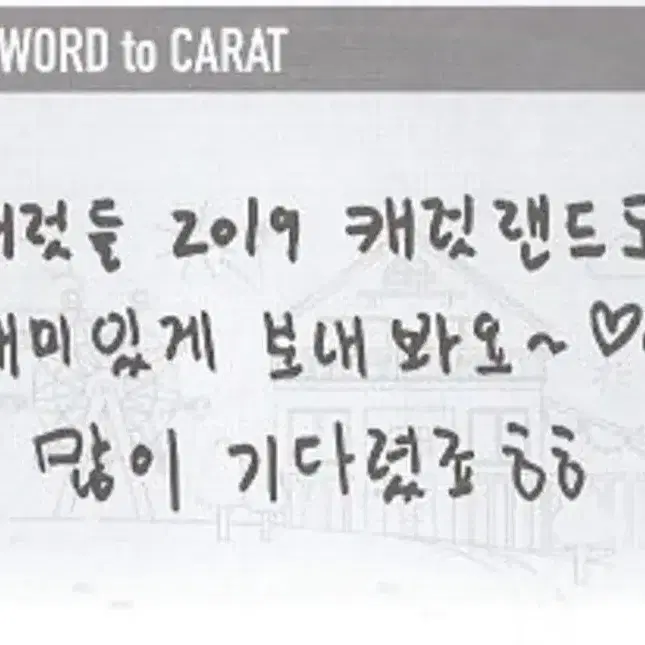 WORD to CARAT
캐럿들 2019 캐럿랜드도
재미있게 보내봐요~♡
많이 기다렸죠ㅎㅎ